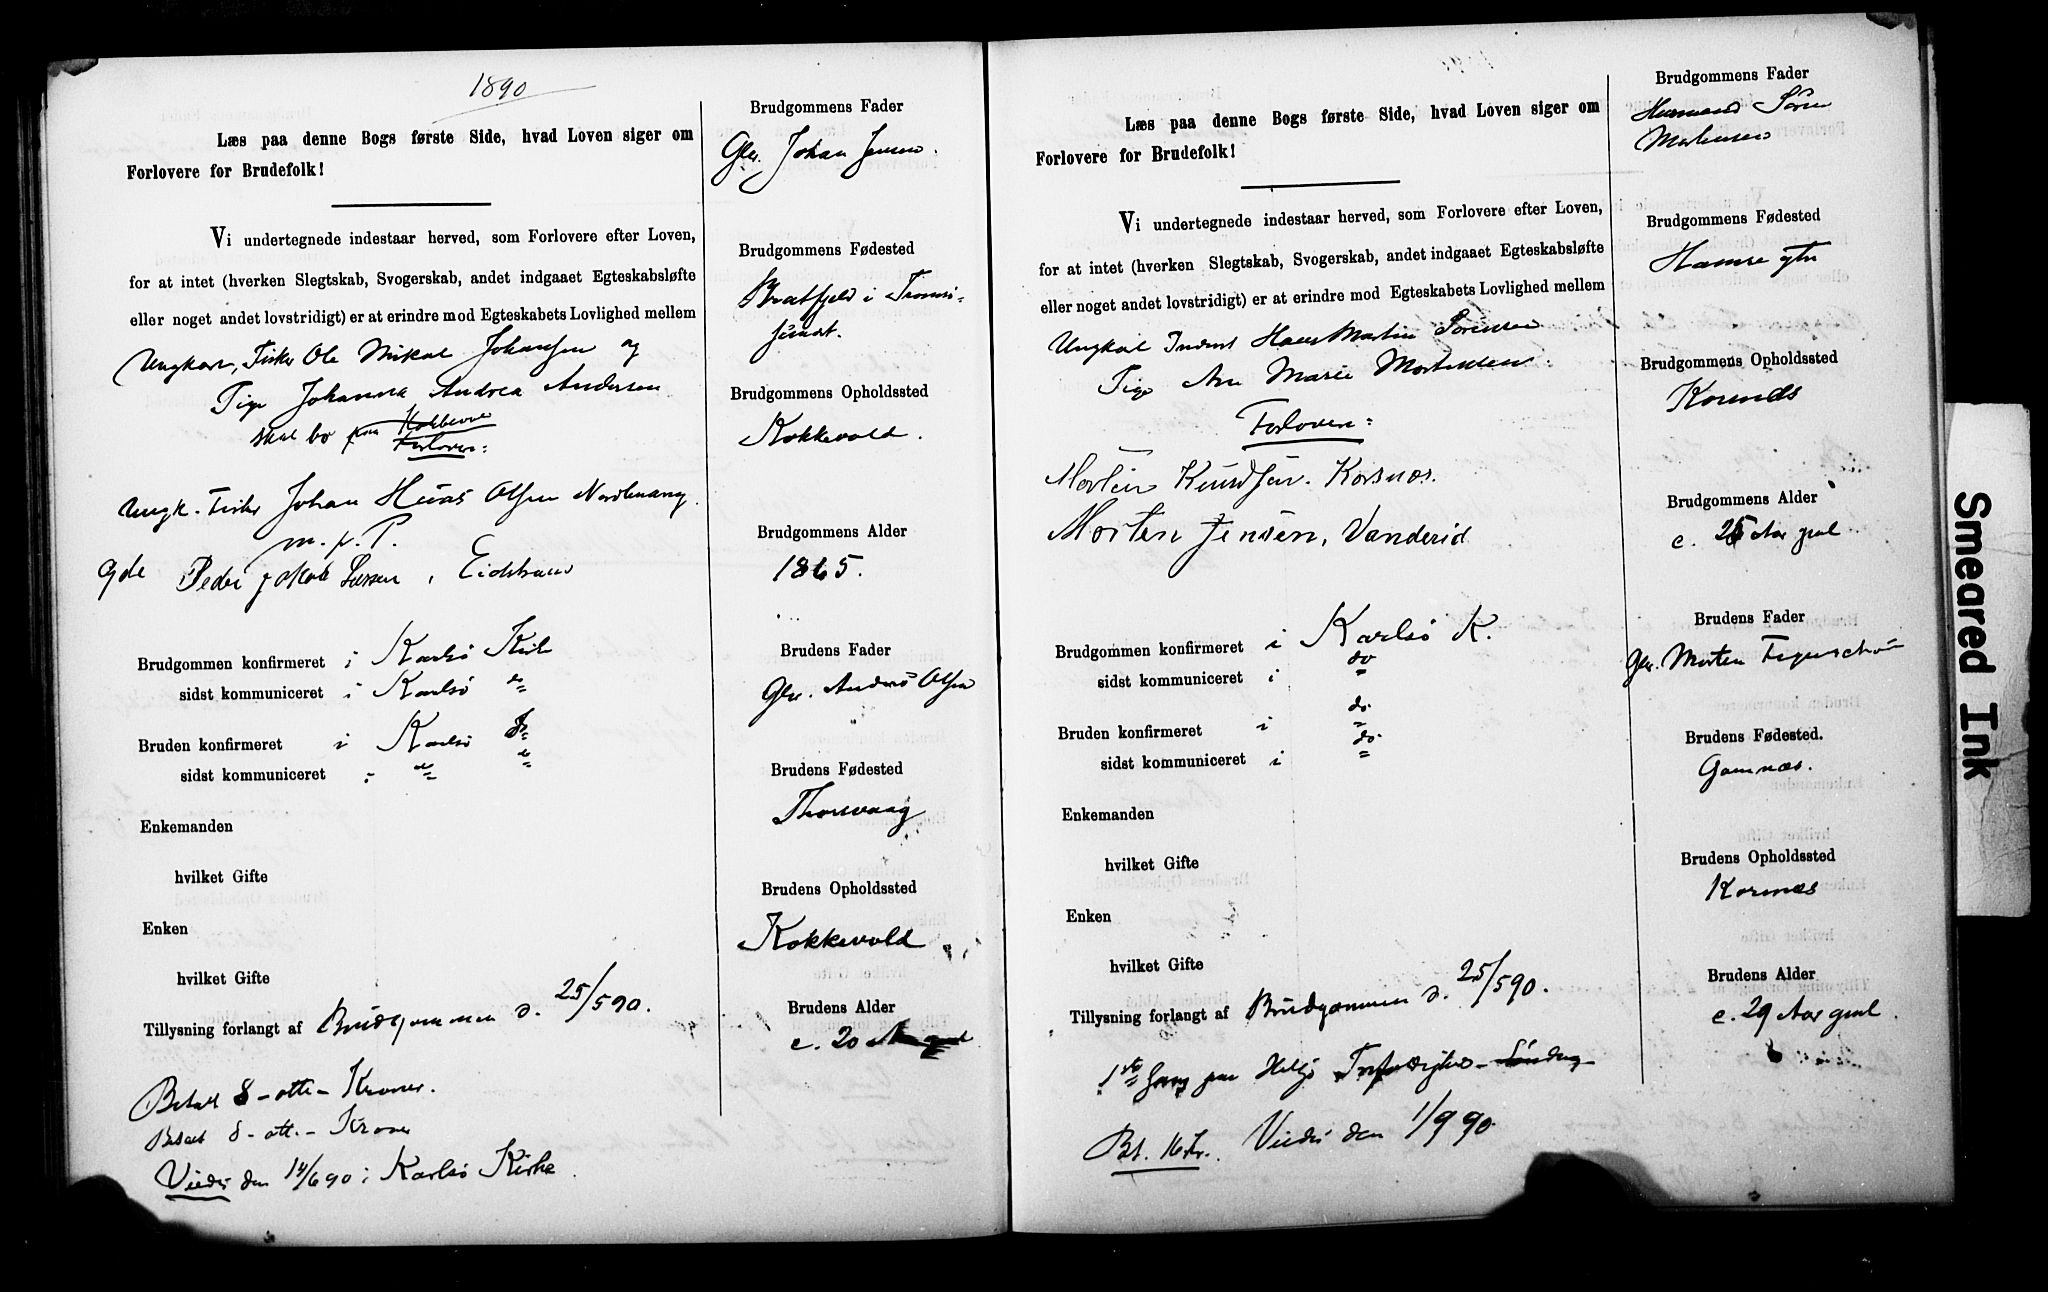 1890
Læs paa denne Bogs første Side, hvad Loven siger om
Forlovere for Brudefolk!
Vi undertegnede indestaar herved, som Forlovere efter Loven,
for at intet (hverken Slegtskab, Svogerskab, andet indgaaet Egteskabsløfte
eller noget andet lovstridigt) er at erindre mod Egteskabets Lovlighed mellem
Ungkar, Fisker Ole Mikal Johansen og
Pige Johanna Andrea Andersen
skal bo paa
Forlovere:
Ungk. Fisker Johan Olsen
m. f. P.
Gde Peder Jakob Larsen,
Brudgommen konfirmeret i Karlsö Kirke
sidst kommuniceret i Karlsö do
Bruden konfirmeret i Karlsö do
sidst kommuniceret i do do
Enkemanden
hvilket Gifte
Enken
hvilket Gifte
Tillysning forlangt af Brudgommen d. 25/5 90.
Betalt 8 - otte - Kroner.
Betalt 8 - otte - Kroner
Viede den 14/6 90 i Karlsö Kirke
Brudgommens Fader
Gbr. Johan Jensen.
Brudgommens Fødested
i Tromsö-
sundet.
Brudgommens Opholdssted
Kokkevold.
Brudgommens Alder
1865.
Brudens Fader
Gbr. Andreas Olsen
Brudens Fødested
Thorsvaag
Brudens Opholdssted
Kokkevold
Brudens Alder
c. 20 Aar
Læs paa denne Bogs første Side, hvad Loven siger om
Forlovere for Brudefolk!
Vi undertegnede indestaar herved, som Forlovere efter Loven,
for at intet (hverken Slegtskab, Svogerskab, andet indgaaet Egteskabsløfte
eller noget andet lovstridigt) er at erindre mod Egteskabets Lovlighed mellem
Ungkal Inderst Hans Martin Sörensen
Pige Ane Marie Mortensen.
Forlovere:
Morten Knudsen. Korsnæs.
Morten Jensen, Vandeid
Brudgommen konfirmeret i Karlsö K.
sidst kommuniceret i do
Bruden konfirmeret i do
sidst kommuniceret i do
Enkemanden
hvilket Gifte
Enken
hvilket Gifte
Tillysning forlangt af Brudgommen d. 25/5 90.
1ste Gang paa Helgö Söndag
Bt. 16 Kr. Viede den 1/9 90
Brudgommens Fader
Sören
Brudgommens Fødested
Hamre ytre
Brudgommens Opholdssted
Korsnæs
Brudgommens Alder
c. 25 Aar gml
Brudens Fader
Gbr. Morten
Brudens Fødested.
Gamnæs.
Brudens Opholdssted
Korsnæs
Brudens Alder
c. 29 Aar gml.
Smeared Ink